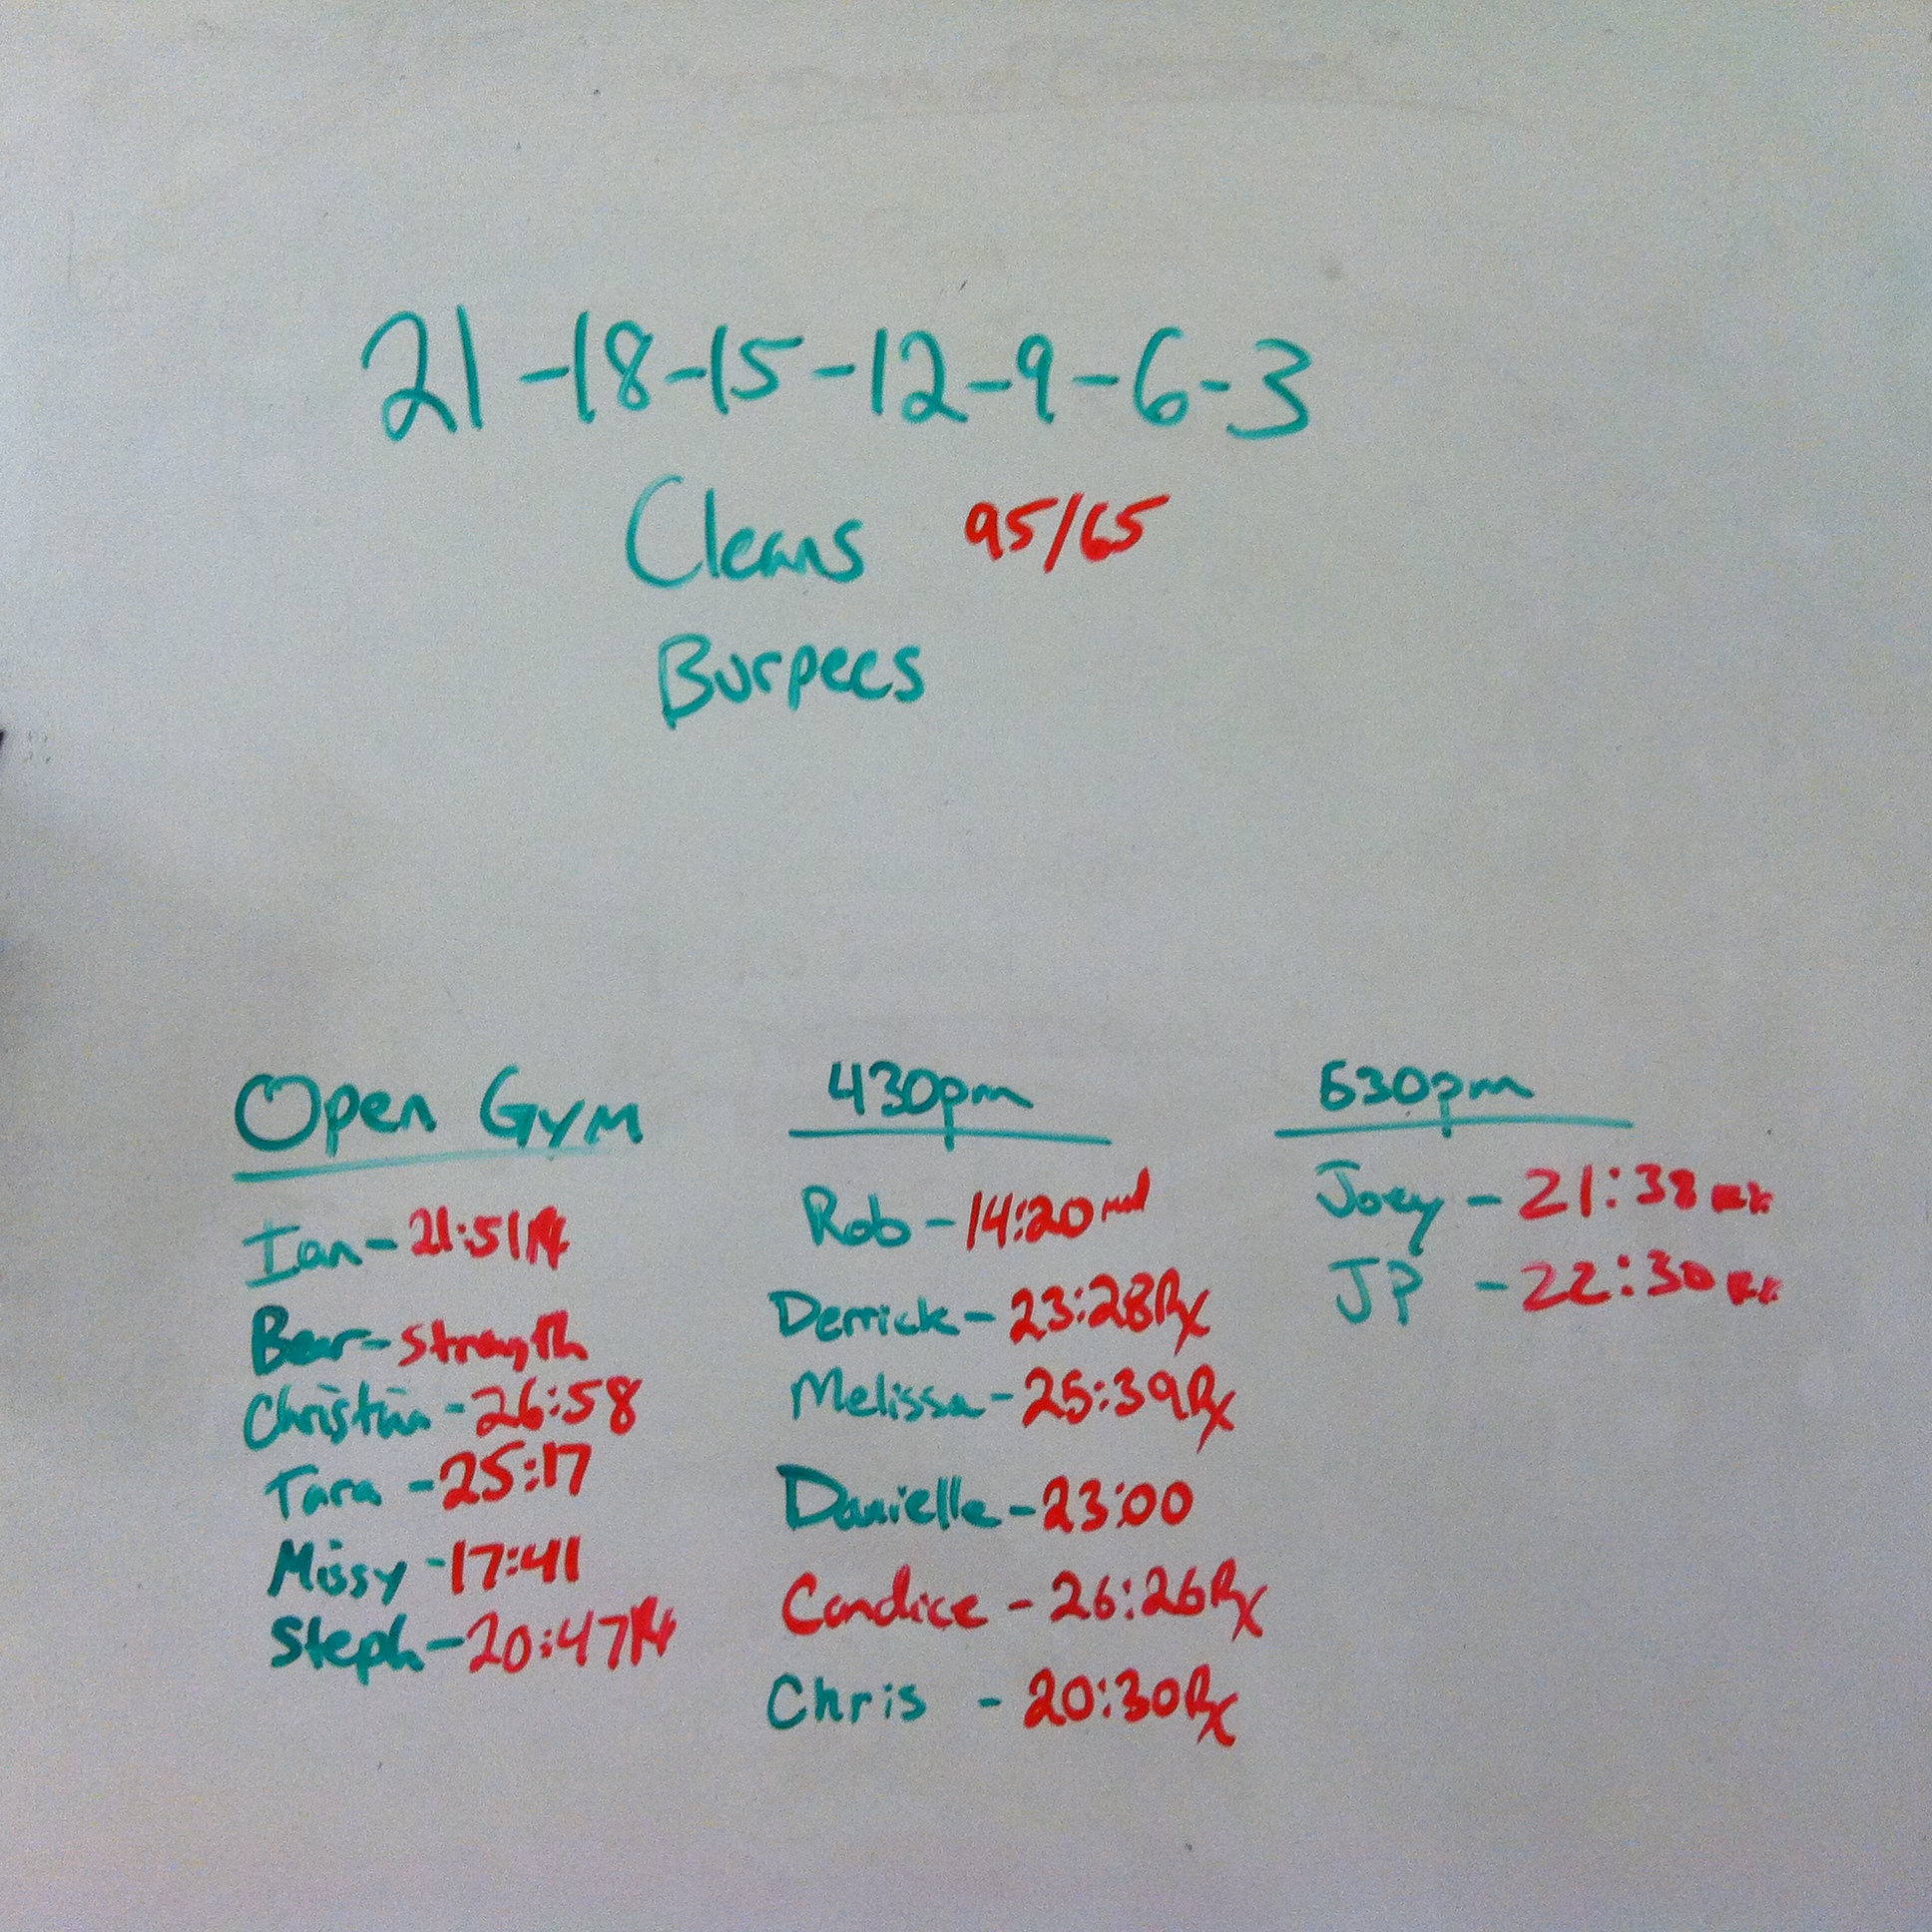 21-18-15-12-9-6-3
Cleans 95/65
Burpees
Open Gym
Ian - 21:51 Rx
Bear - Strength
Christin - 26:58
Tara - 25:17
Missy - 17:41
Steph - 20:47 Rx
430pm
Rob - 14:20
Derrick - 23:28 Rx
Melissa - 25:39 Rx
Danielle - 23:00
Candice - 26:26 Rx
Chris - 20:30 Rx
630pm
Joey - 21:38 Rx
JP - 22:30 Rx